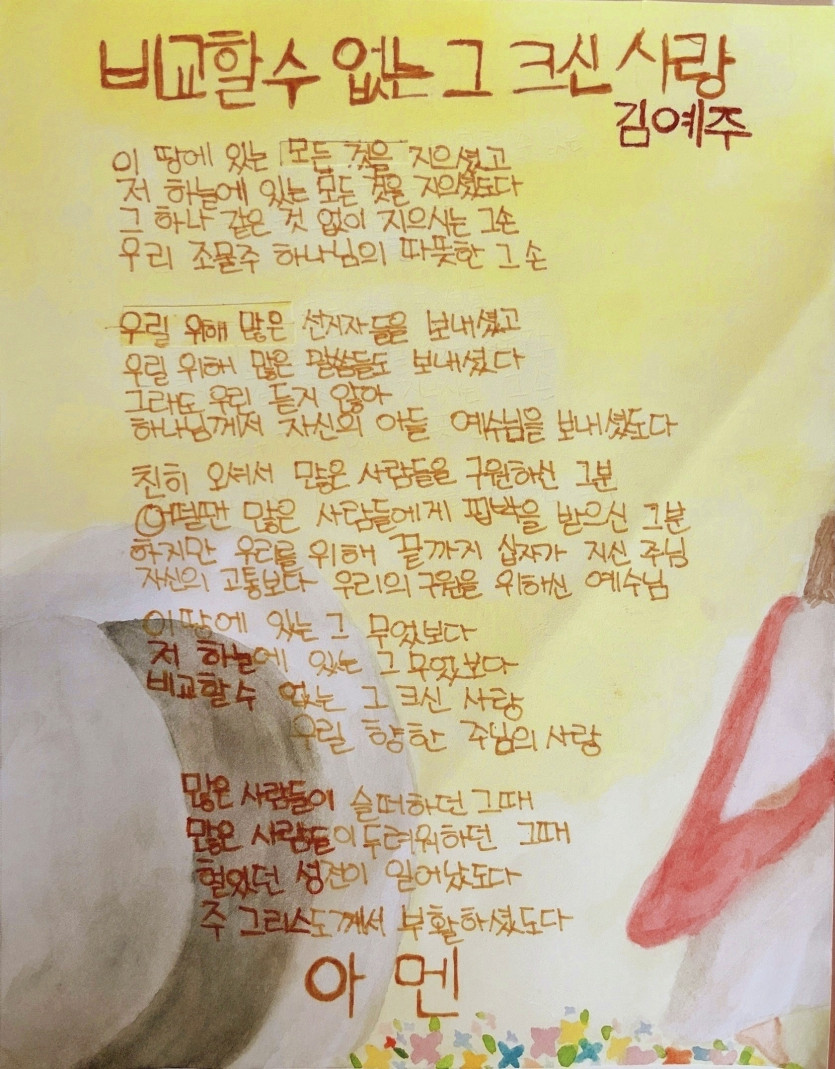 비교할 수 없는 그 크신 사랑
김예주
이 땅에 있는 모든 것을 지으셨고
저 하늘에 있는 모든 것을 지으셨도다
그 하나 같은 것 없이 지으시는 그손
우리 조물주 하나님의 따뜻한 그 손
우릴 위해 많은 선지자들을 보내셨고
우릴 위해 많은 말씀들도 보내셨다
그래도 우린 듣지 않아
하나님께서 자신의 아들 예수님을 보내셨도다
친히 오셔서 많은 사람들을 구원하신 그분
어떨땐 많은 사람들에게 핍박을 받으신 그분
하지만 우리를 위해 끝까지 십자가 지신 주님
자신의 고통보다 우리의 구원을 위하신 예수님
이 땅에 있는 그 무엇보다
저 하늘에 있는 그 무엇보다
비교할 수 없는 그 크신 사랑
우릴 향한 주님의 사랑
많은 사람들이 슬퍼하던 그때
많은 사람들이 두려워하던 그때
헐었던 성전이 일어났도다
주 그리스도께서 부활하셨도다
아멘